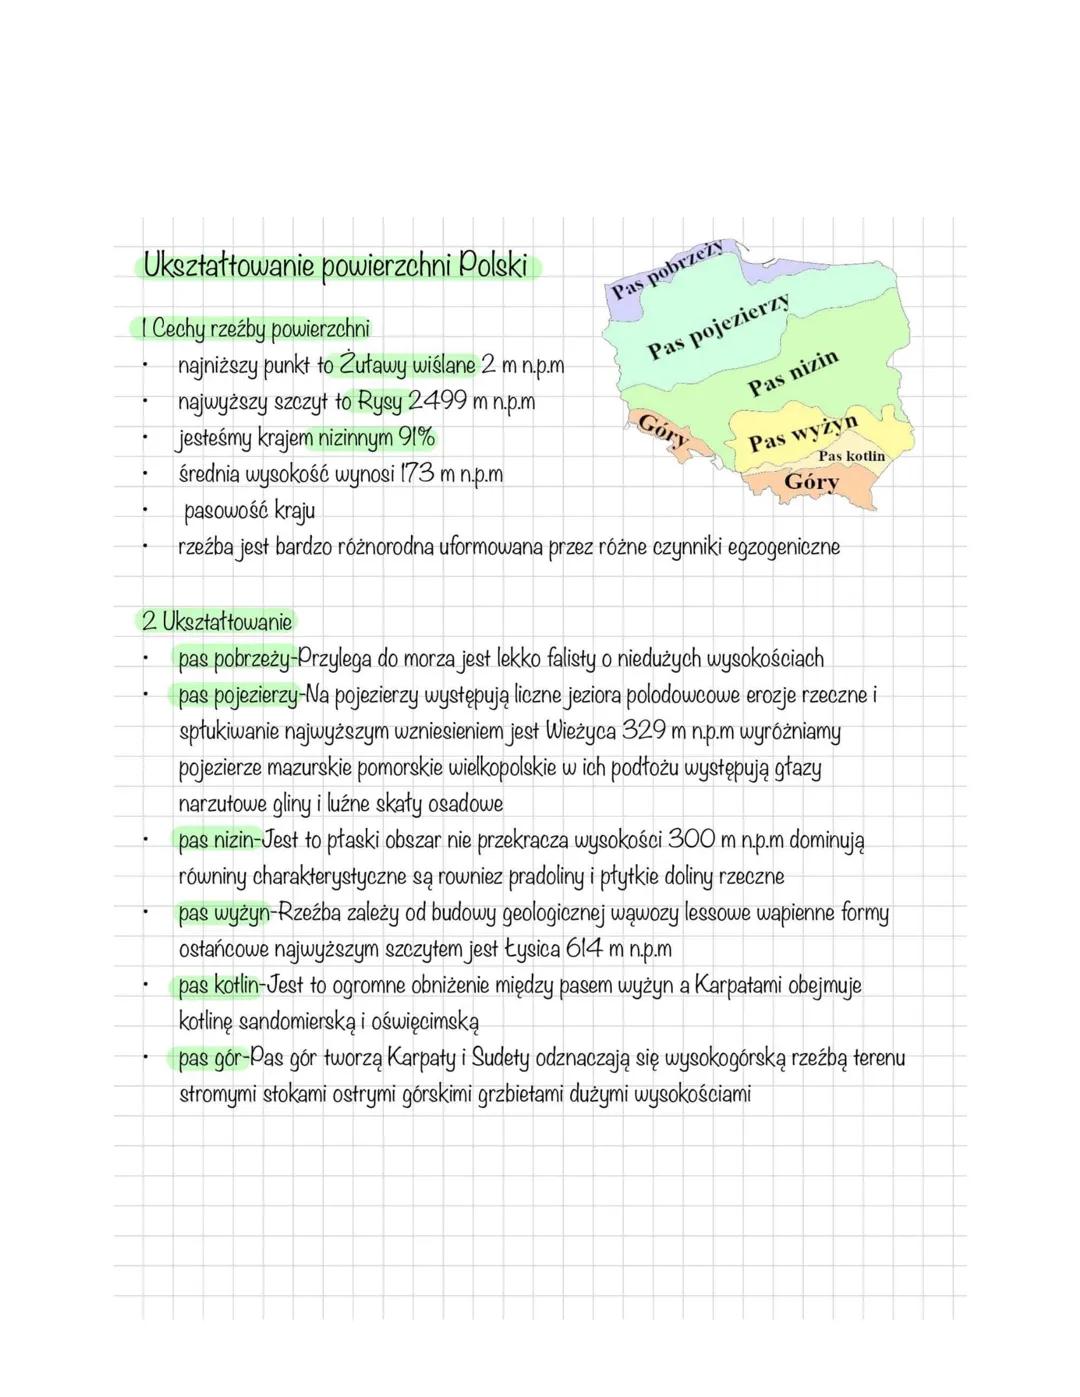 Ukształtowanie powierzchni Polski
Pas pobrzeży
Pas pojezierzy
Pas nizin
Góry
Pas wyżyn
Pas kotlin
Góry
1 Cechy rzeźby powierzchni
• najniższy punkt to Żuławy wiślane 2 m n.p.m
• najwyższy szczyt to Rysy 2499 m n.p.m
• jesteśmy krajem nizinnym 91%
• średnia wysokość wynosi 173 m n.p.m
• pasowość kraju
• rzeźba jest bardzo różnorodna uformowana przez różne czynniki egzogeniczne
2 Ukształtowanie
• pas pobrzeży-Przylega do morza jest lekko falisty o niedużych wysokościach
• pas pojezierzy-Na pojezierzy występują liczne jeziora polodowcowe erozje rzeczne i
spłukiwanie najwyższym wzniesieniem jest Wieżyca 329 m n.p.m wyróżniamy
pojezierze mazurskie pomorskie wielkopolskie w ich podłożu występują głazy
narzutowe gliny i luźne skały osadowe
• pas nizin-Jest to płaski obszar nie przekracza wysokości 300 m n.p.m dominują
równiny charakterystyczne są rowniez pradoliny i płytkie doliny rzeczne
• pas wyżyn-Rzeźba zależy od budowy geologicznej wąwozy lessowe wapienne formy
ostańcowe najwyższym szczytem jest Łysica 614 m n.p.m
• pas kotlin-Jest to ogromne obniżenie między pasem wyżyn a Karpatami obejmuje
kotlinę sandomierską i oświęcimską
• pas gór-Pas gór tworzą Karpaty i Sudety odznaczają się wysokogórską rzeźbą terenu
stromymi stokami ostrymi górskimi grzbietami dużymi wysokościami